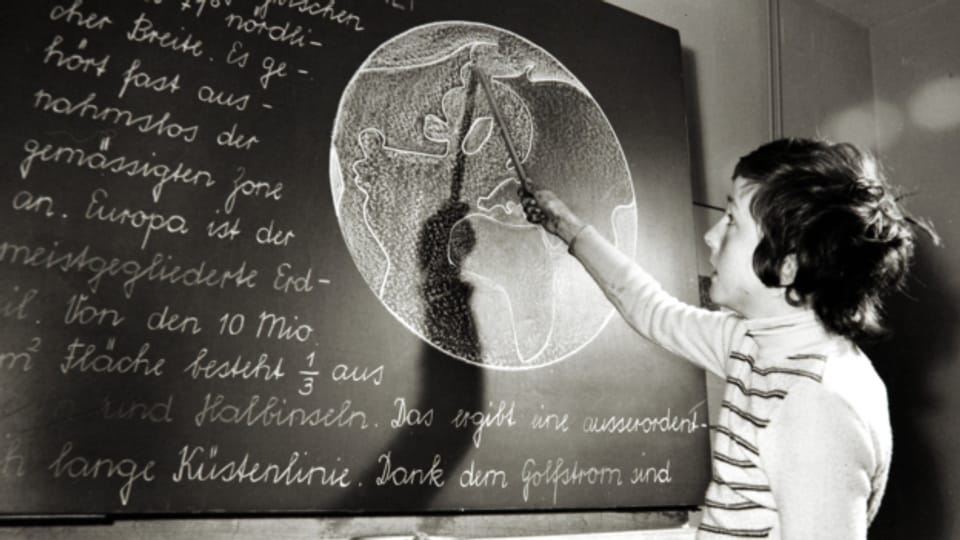 nördli-
cher Breite. Es ge-
hört fast aus-
nahmslos der
gemässigten Zone
an. Europa ist der
meistgegliederte Erd-
il. Von den 10 Mio
m² Fläche besteht 1/3 aus
und Halbinseln. Das ergibt eine ausserordent-
h lange Küstenlinie. Dank dem Golfstrom sind